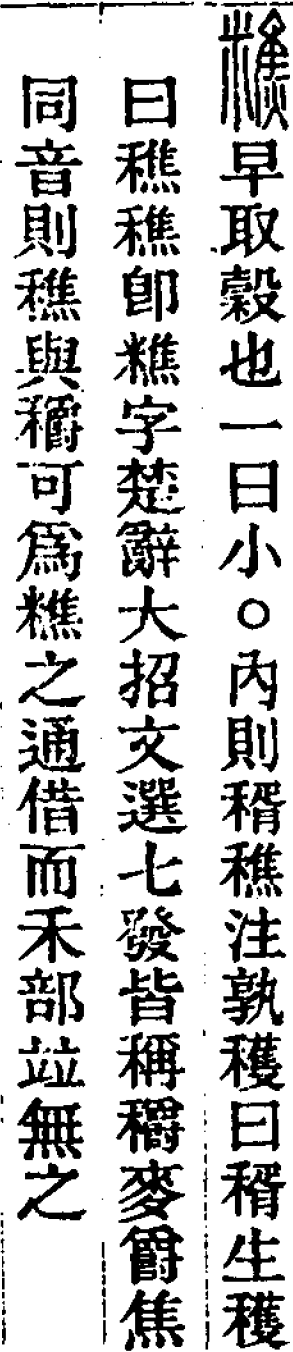 糕早取穀也一曰小○內則稰穛注孰穫曰稰生穫
曰穛穛卽糕字楚辭大招文選七發皆稱穱麥爵焦
同音則穛與穱可爲糕之通借而禾部竝無之